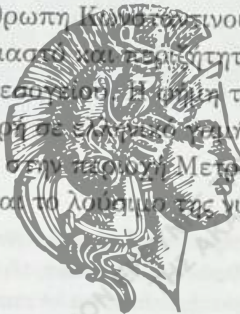 θρωπη Κωνσταντινου
μαστό και περιζήτητ
εσογείου. Η φήμη τ
ρη σε ελληνικό
στην περιοχή Μετρ
αι το λούσιμο της γυ